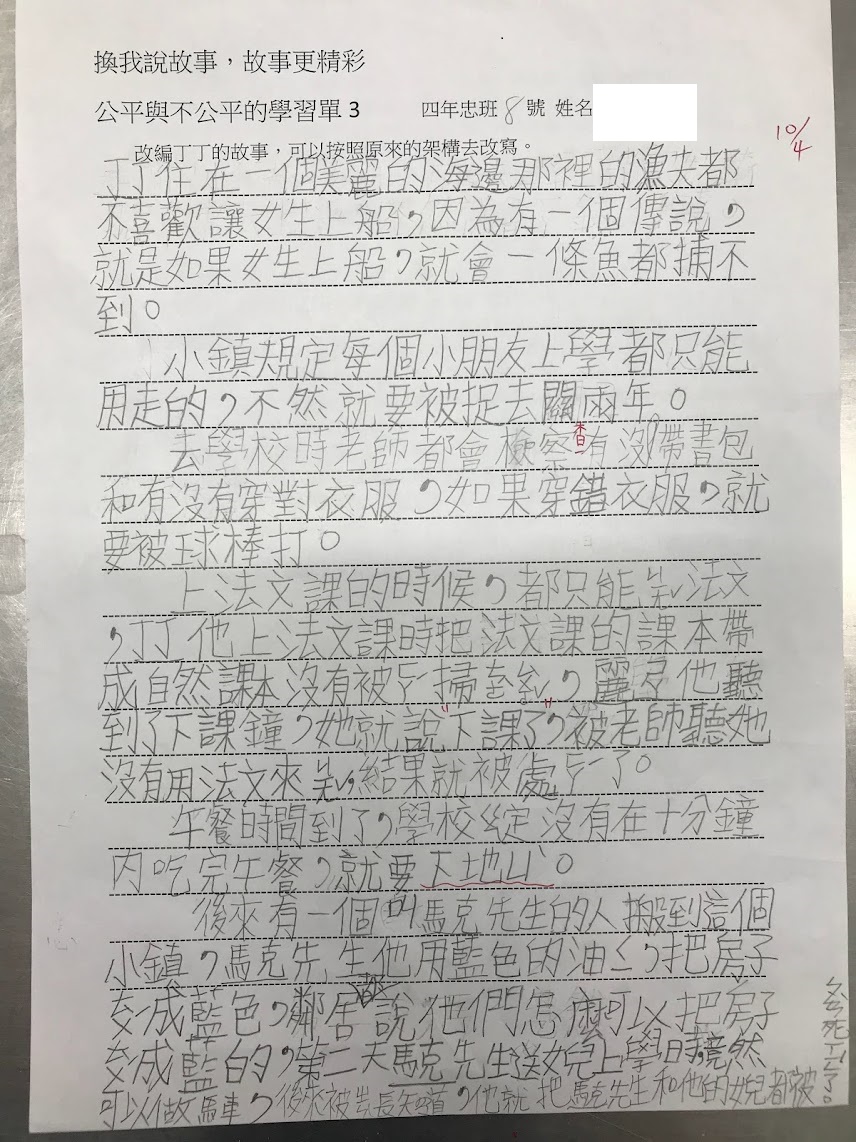 換我說故事，故事更精彩
公平與不公平的學習單 3 四年忠班 8 號 姓名
10/4
改編丁丁的故事，可以按照原來的架構去改寫。
丁丁住在一個美麗的海邊那裡的漁夫都
不喜歡讓女生上船，因為有一個傳說，
就是如果女生上船，就會一條魚都捕不
到。
小鎮規定每個小朋友上學都只能
用走的，不然就要被捉去關兩年。
去學校時老師都會檢察有沒帶書包
查
和有沒有穿對衣服，如果穿錯衣服，就
要被球棒打。
上法文課的時候，都只能ㄐㄧㄤˇ法文
，丁丁他上法文課時把法文課的課本帶
成自然課本沒有被ㄈㄚˊ掃
，麗 他聽
到了下課鐘，她就說"下課了"，被老師聽她
沒有用法文來ㄐㄧㄤˇ，結果就被處ㄈㄚˊ了。
午餐時間到了，學校 定沒有在十分鐘
內吃完午餐，就要下地ㄩˋ。
後來有一個叫馬克先生的人搬到這個
小鎮，馬克先生他用藍色的油ㄑㄧ，把房子
成藍色，鄰居都說他們怎麼可以把房子
成藍的，第二天馬克先生送女兒上學時竟然
可以做馬車，後來被 長知道，他就把馬克先生和他的女兒都被
死了。